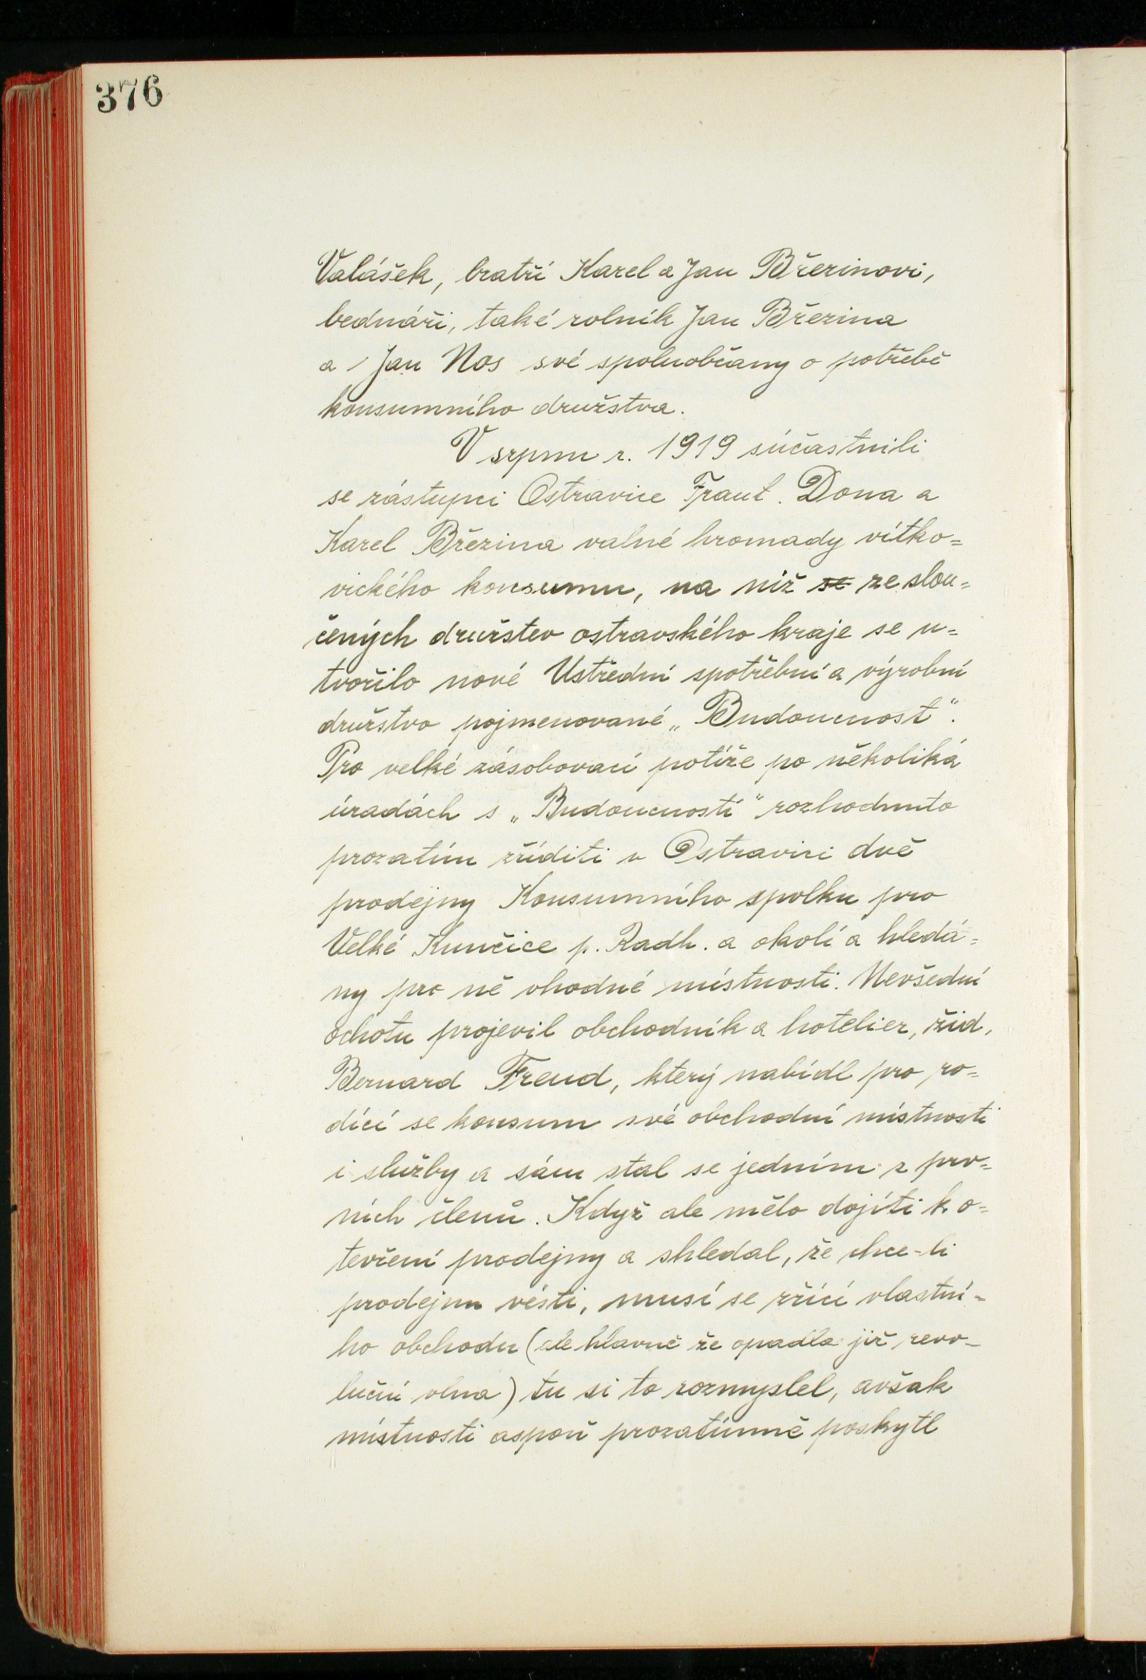 376
Valášek, bratří Karel a Jan Březinovi,
bednáři, také rolník Jan Březina
a Jan Nos své spoluobčany o potřebě
konsumního družstva.
V srpnu r. 1919 súčastnili
se zástupci Ostravice Frant. Dona a
Karel Březina valné hromady vítko=
vického konsumu, na níž se ze slou=
čených družstev ostravského kraje se u=
tvořilo nové Ustřední spotřební a výrobní
družstvo pojmenované „Budoucnost".
Pro velké zásobovací potíže po několiká
úradách s „Budoucností" rozhodnuto
prozatím zříditi v Ostravici dvě
prodejny Konsumního spolku pro
Velké Kunčice p. Radh. a okolí a hledá=
ny pro ně vhodné místnosti. Nevšední
ochotu projevil obchodník a hotelier, žid,
Bernard Freud, který nabídl pro ro=
dící se konsum své obchodní místnosti
i služby a sám stal se jedním z prv=
ních členů. Když ale mělo dojíti k o=
tevření prodejny a shledal, že chce-li
prodejnu vésti, musí se zříci vlastní-
ho obchodu (ale hlavně že opadla již revo-
luční vlna) tu si to rozmyslel, avšak
místnosti aspoň prozatímně poskytl